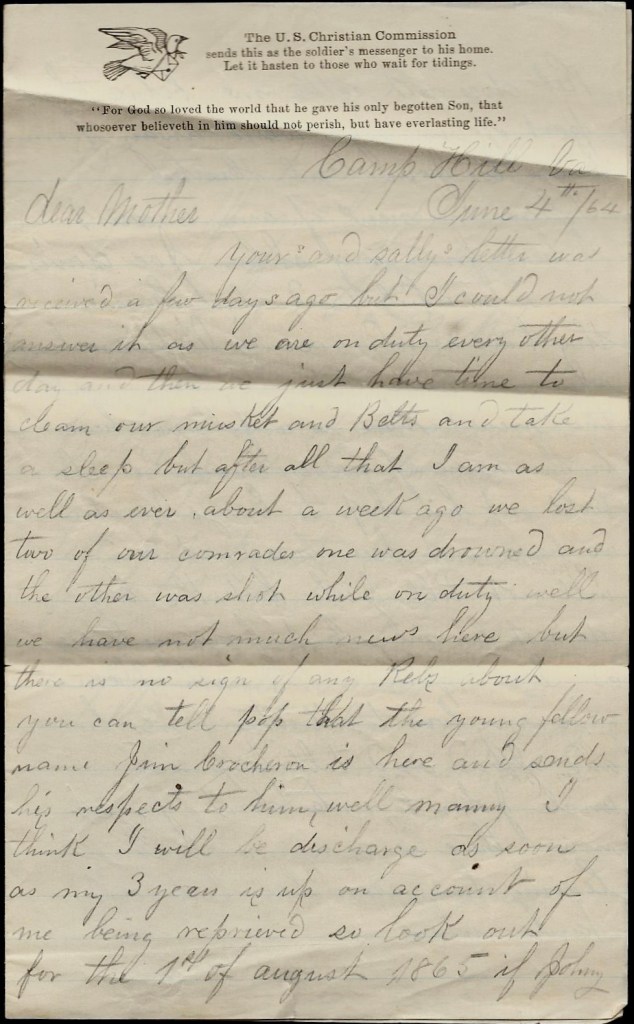 The U.S. Christian Commission
sends this as the soldier's messenger to his home.
Let it hasten to those who wait for tidings.
"For God so loved the world that he gave his only begotten Son, that
whosoever believeth in him should not perish, but have everlasting life."
Camp Hill Va
dear Mother June 4th/64
your's and sally's letter was
received a few days ago but I could not
answer it as we are on duty every other
day and then we just have time to
clean our musket and Belts and take
a sleep but after all that I am as
well as ever. about a week ago we lost
two of our comrades one was drowned and
the other was shot while on duty well
we have not much news here but
there is no sign of any Rebz about
you can tell pop that the young fellow
name Jim Crocheron is here and sends
his respects to him, well mammy I
think I will be discharge as soon
as my 3 years is up on account of
me being reprieved so look out
for the 1st of august 1865 if Johny